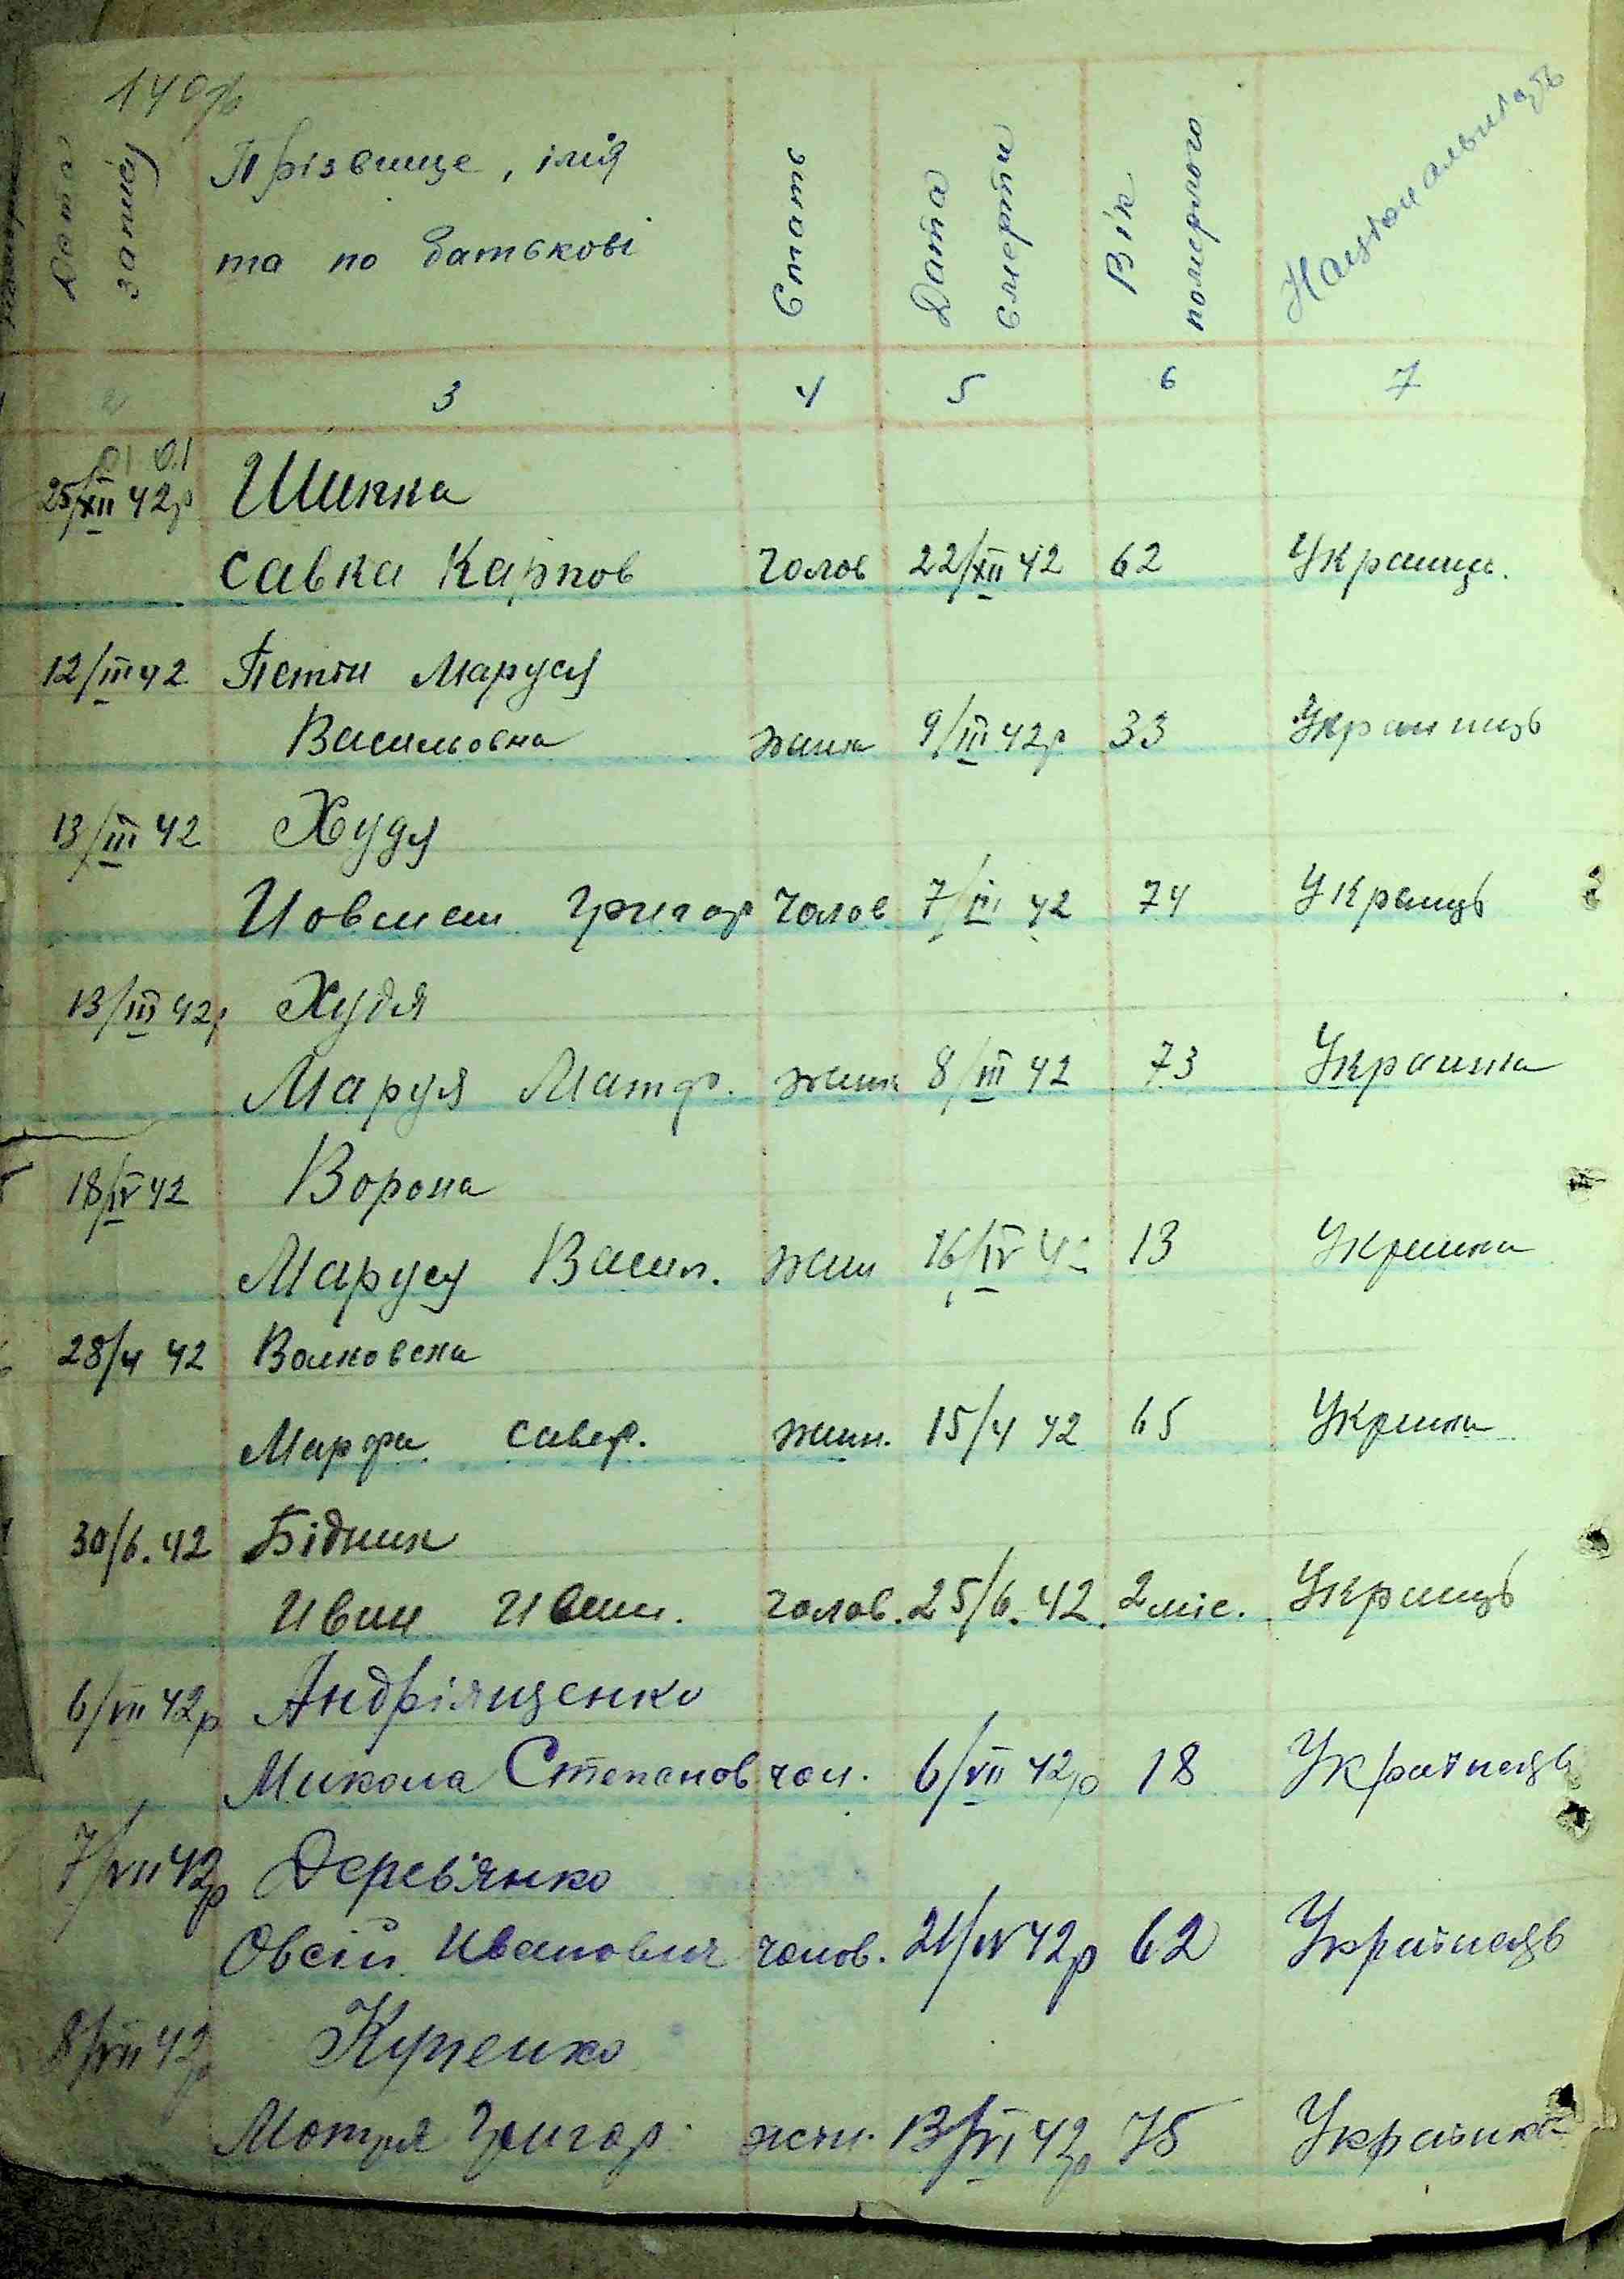 Дата запису
Прізвище, імя
та по батькові
Стать
Дата смерти
Вік померлого
Національність
3 4 5 6 7
25/XII 42р Шинка
Савка Карпов Чолов 22/XII 42 62 Украинць.
12/III 42 Маруся
Васильовна жинк 9/III 42р 33 Украинць
13/III 42 Худя
Григор Чолов 7/III 42 74 Украинць
13/III 42р Худя
Маруся Матф. жинк 8/III 42 73 Украинка
18/IV 42 Ворона
Маруся Васил. жин 16/IV 42 13 Украинка
28/4 42 Волковска
Марфа Савер. жинк. 15/4 42 65 Украинка
30/6. 42 Бідник
Иван Иван. Чолов. 25/6. 42. 2 міс. Украинць
6/VII 42р Андріященко
Микола Степанов чол. 6/VII 42р 18 Українець
7/VII 42р Дерев'янко
Овсій Иванович чолов. 21/IV 42р 62 Українець
8/VII 42р Куценко
Мотря Григор. жін. 13/VI 42р 75 Українка